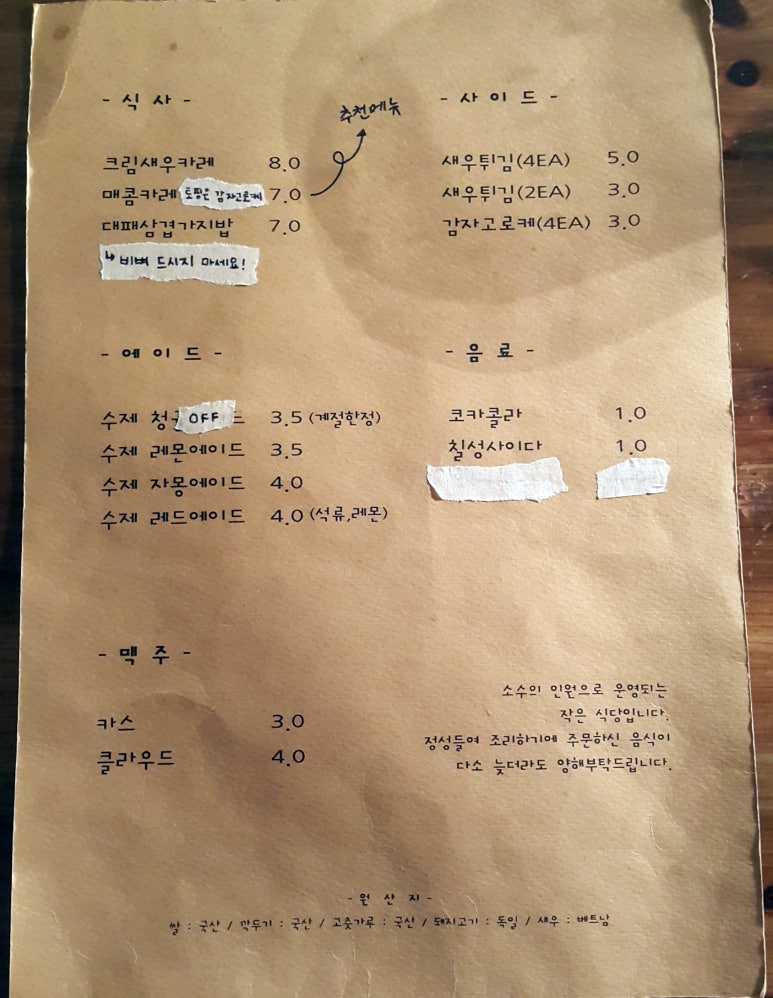 - 식 사 -
추천메뉴
크림새우카레 8.0
매콤카레 토핑은 감자고로케 7.0
대패삼겹가지밥 7.0
↳ 비벼 드시지 마세요!
- 사 이 드 -
새우튀김(4EA) 5.0
새우튀김(2EA) 3.0
감자고로케(4EA) 3.0
- 에 이 드 -
수제 청 OFF 드 3.5 (계절한정)
수제 레몬에이드 3.5
수제 자몽에이드 4.0
수제 레드에이드 4.0 (석류,레몬)
- 음 료 -
코카콜라 1.0
칠성사이다 1.0
- 맥 주 -
카스 3.0
클라우드 4.0
소수의 인원으로 운영되는
작은 식당입니다.
정성들여 조리하기에 주문하신 음식이
다소 늦더라도 양해부탁드립니다.
- 원 산 지 -
쌀 : 국산 / 깍두기 : 국산 / 고춧가루 : 국산 / 돼지고기 : 독일 / 새우 : 베트남